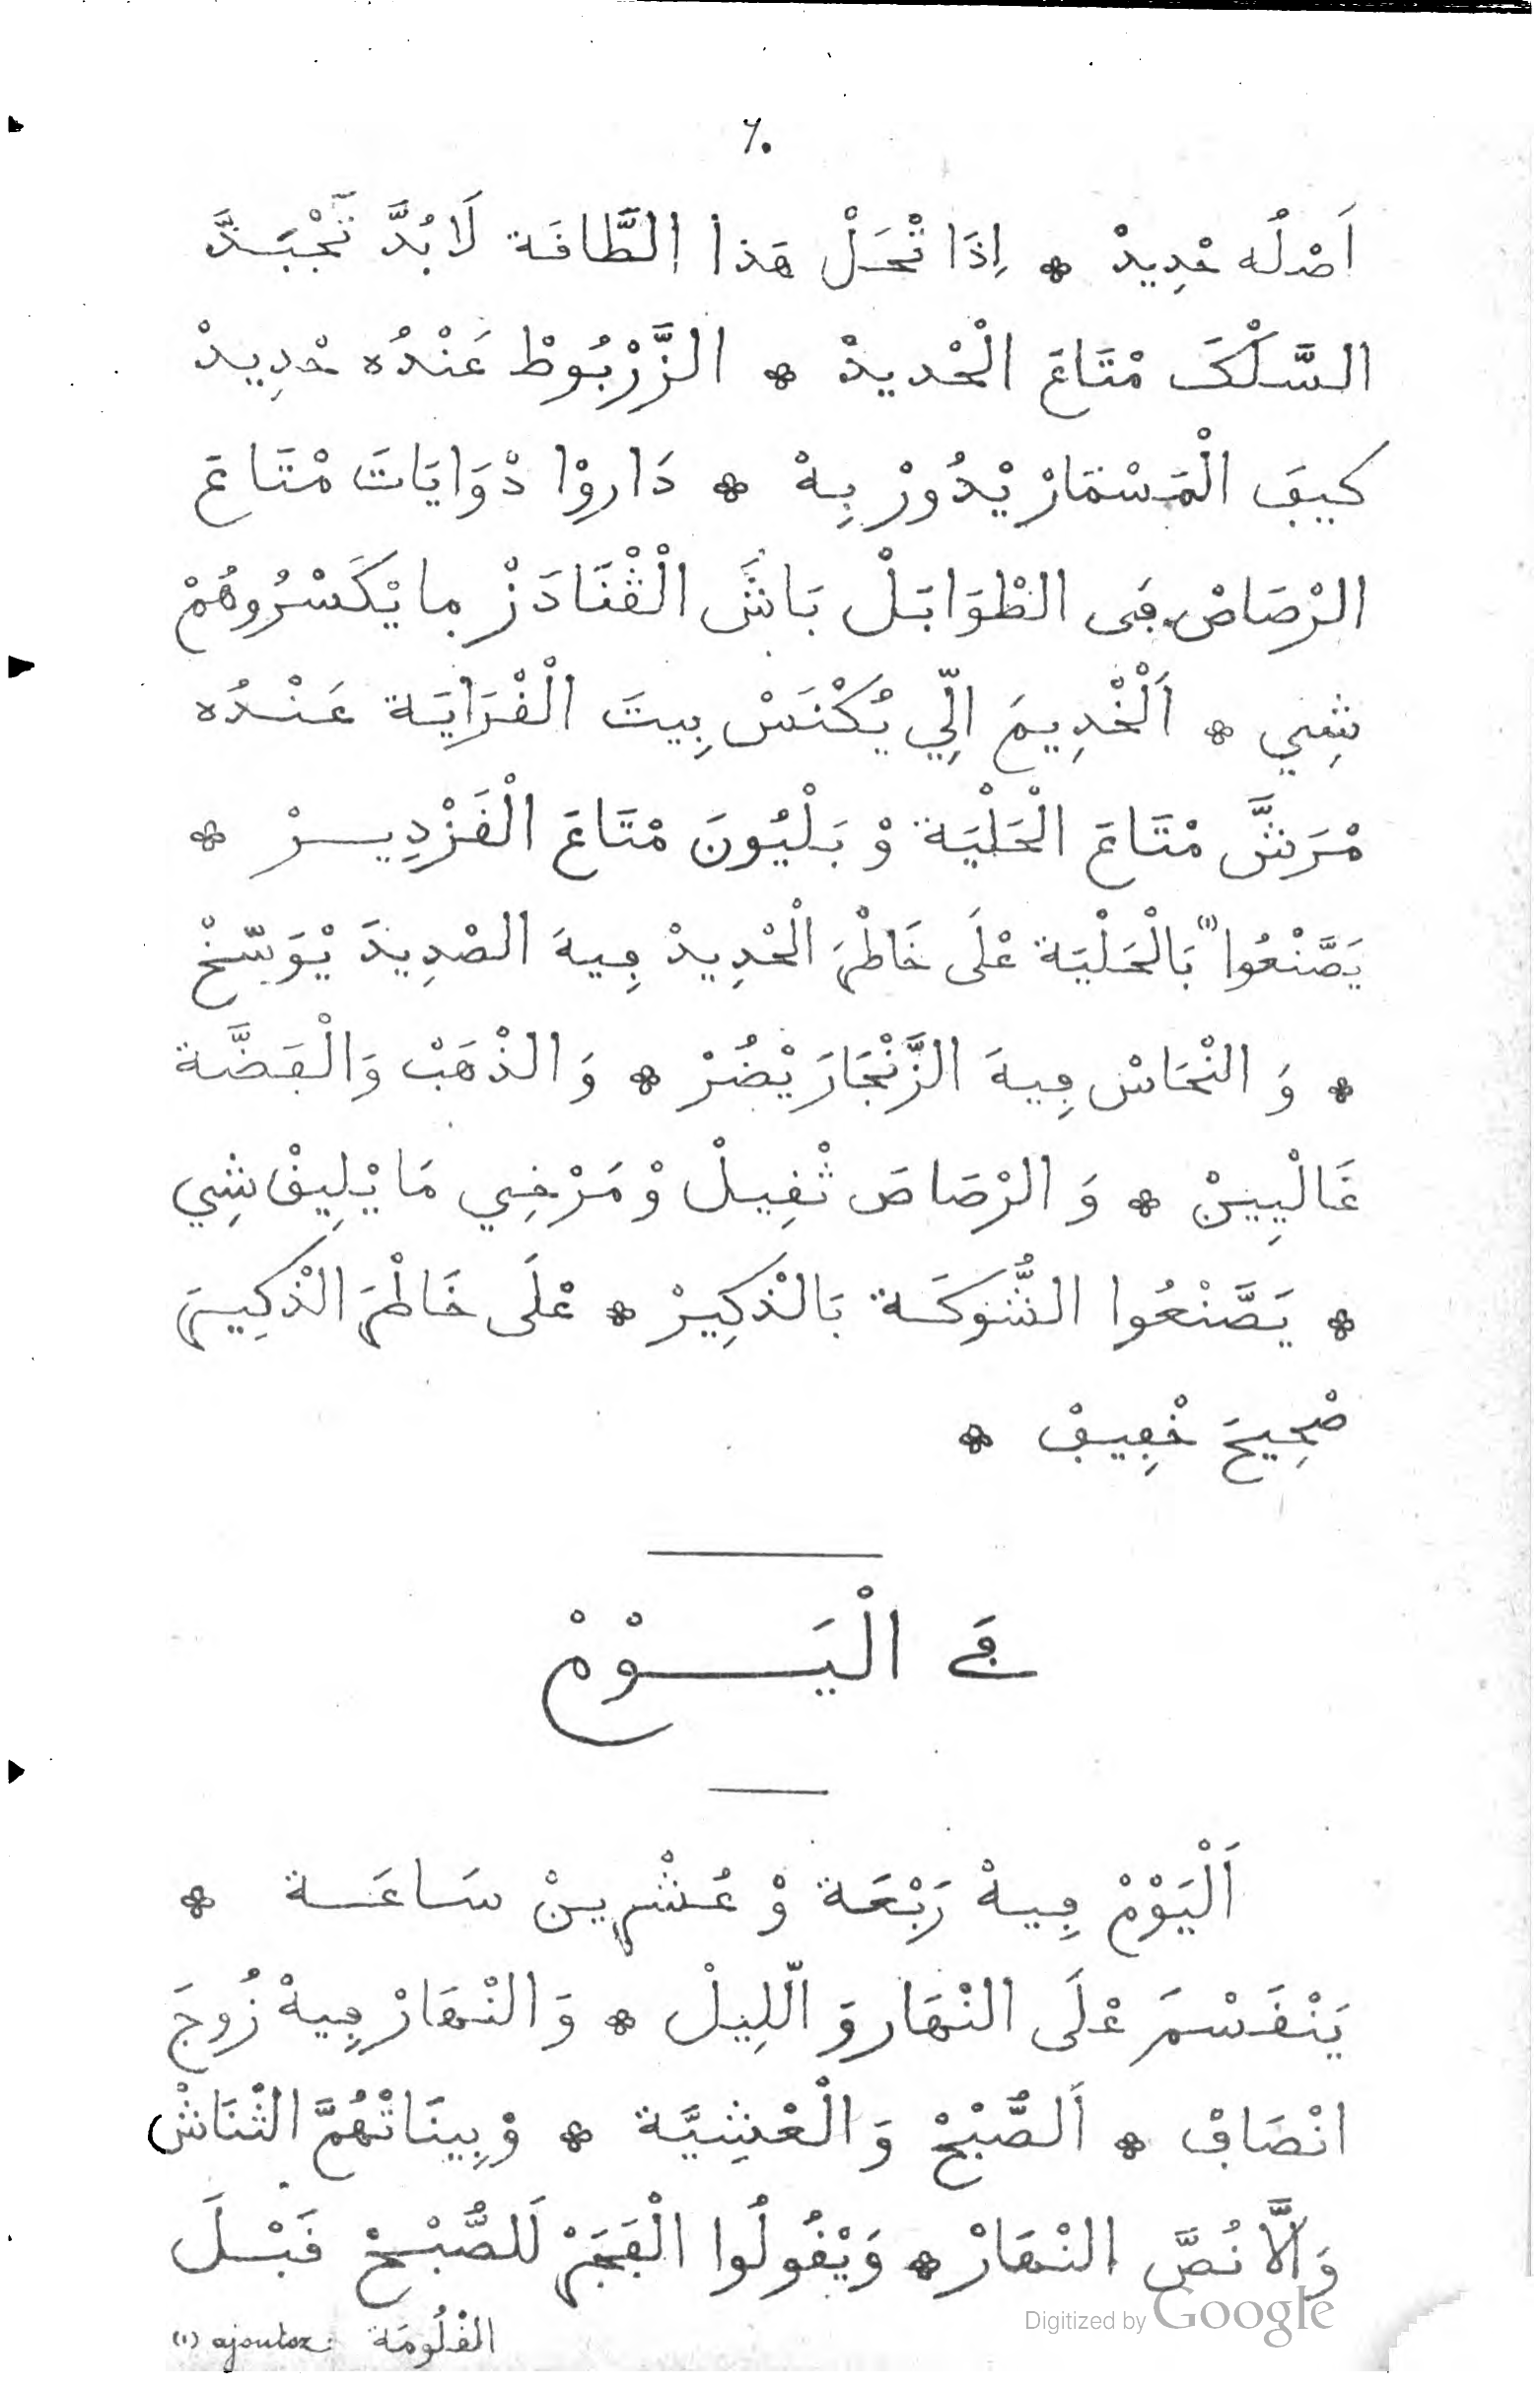 ٦٠
اَصْلُه حْدِيدْ * اِذَا تْحَلْ هَذا الطَّاڧَة لَا بُدَّ تَّجْبَدَّ
السَّلْكَ مْتَاعَ الْحْديدْ * الزَّرْبُوطْ عَنْدُه حْدِيدْ
كيڢَ الْمَسْمَارْ يْدُورْ بِهْ * دَاروْا دْوَايَاتَ مْتَاعَ
الرْصَاصْ ڢَى الطْوَابَلْ بَاشَ الْڧْنَادَزْ ما يْكَسْرُوهُمْ
شِي * اَلْخْدِيمَ اِلِّي يُكْنَسْ بِيتَ الْڧْرَايَة عَنْدُه
مْرَشَّ مْتَاعَ الْحَلْيَة وْ بَلْيُونَ مْتَاعَ الْڧَزْدِيرْ *
يَصَّنْعُوا (١) بَالْحَلْيَة عْلَى خَاطْرَ الْحْدِيدْ ڢِيهَ الصْدِيدَ يْوَسّخْ
* وَ النْحَاسْ ڢِيهَ الزَّنْجَارَ يْضُرْ * وَ الذْهَبْ وَالْڢَضَّة
غَالْيِينْ * وَ الرْصَاصَ ثْڧِيلْ وْ مَرْخِي مَا يْلِيڧْ شِي
* يَصَّنْعُوا الشُّوكَة بَالْذْكِيرْ * عْلَى خَاطْرَ الذْكِيرَ
صْحِيحَ خْڢِيڢْ *
ڢَي الْيَوْمْ
اَلْيَوْمْ ڢِيهْ رَبْعَة وْ عُشْرِينْ سَاعَة *
يَنْڧَسْمَ عْلَى النْهَار وَ الّلِيلْ * وَ النْهَارْ ڢِيهْ زُوجَ
انْصَاڢْ * اَلصُّبْحْ وَ الْعْشِيَّة * وْ بِينَاتْهُمَّ الثْنَاشْ
وَلَّا نُصَّ النْهَارْ * وَيْڧُولُوا الْڢَجَرْ لَلصُّبْحْ ڧَبْلَ
(1) ajoutez : الڧْلُومَة
Digitized by Google